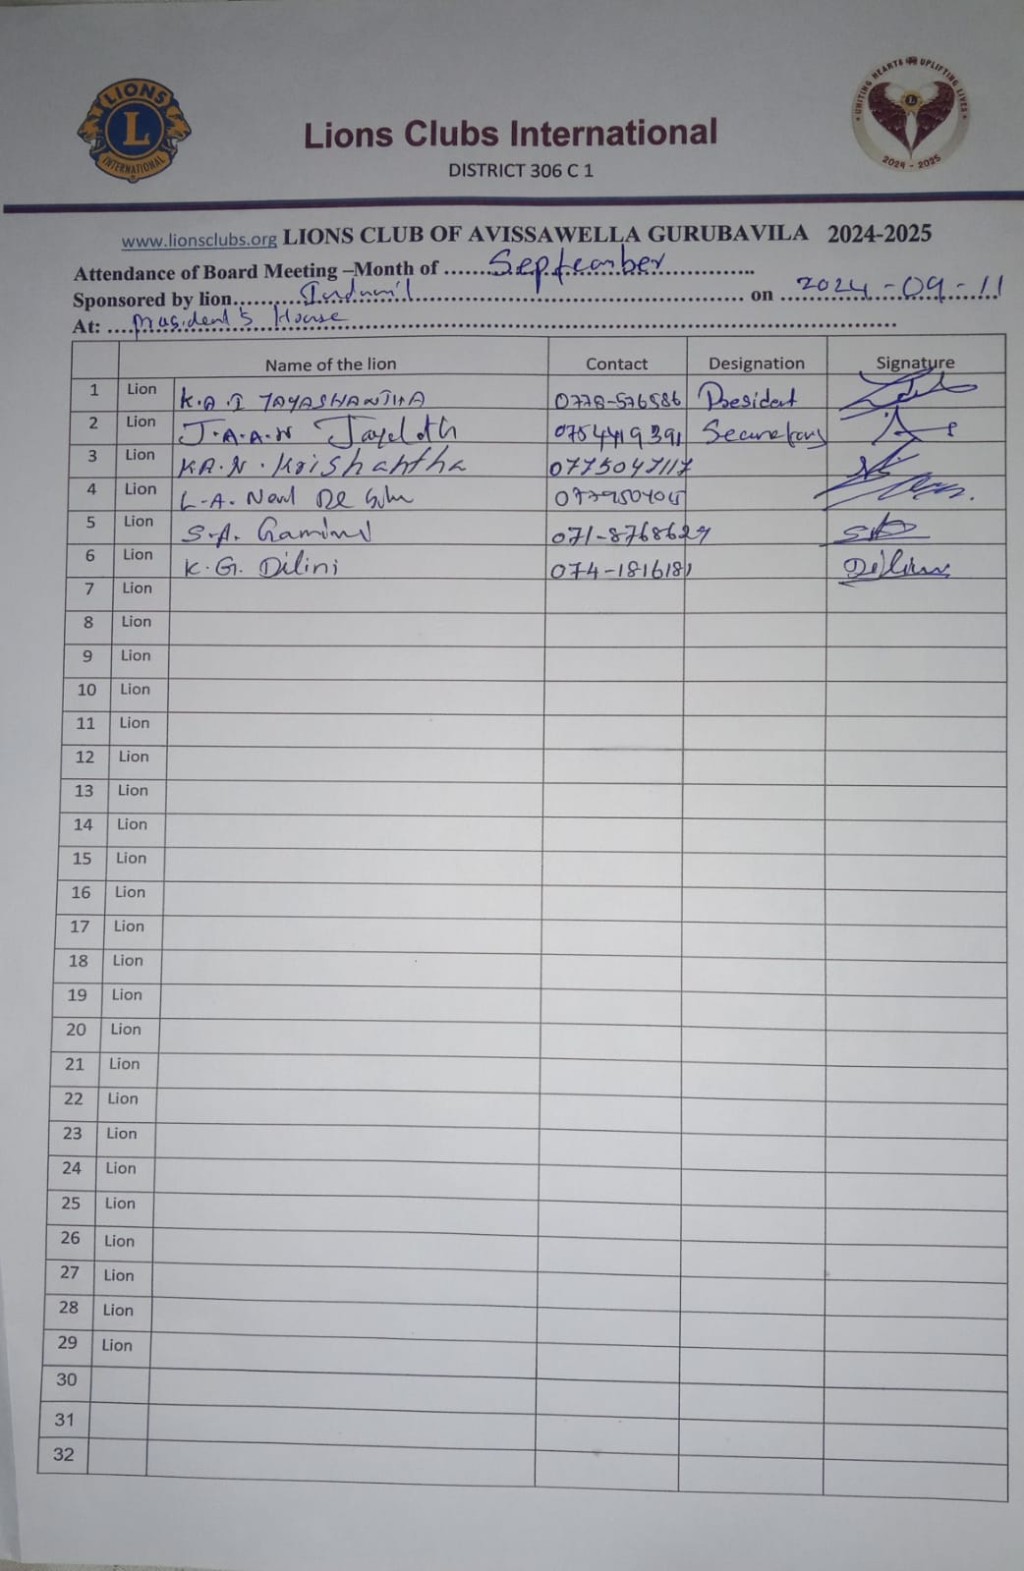 LIONS
L
INTERNATIONAL
UNITING HEARTS UPLIFTING LIVES
2024 - 2025
Lions Clubs International
DISTRICT 306 C 1
www.lionsclubs.org LIONS CLUB OF AVISSAWELLA GURUBAVILA 2024-2025
Attendance of Board Meeting –Month of ......September..................
Sponsored by lion..........Indunil.......................... on ....2024-09-11
At: ....President's House....................
Name of the lion Contact Designation Signature
1 Lion K.A.I JAYASHANTHA 0778-576586 President
2 Lion J.A.A.N 0754419391 Secretary
3 Lion K.A.N. Krishantha 0775047117
4 Lion L.A. De
5 Lion S.A. Gamini 071-8768629
6 Lion K.G. Dilini 074-1816181 Dilini
7 Lion
8 Lion
9 Lion
10 Lion
11 Lion
12 Lion
13 Lion
14 Lion
15 Lion
16 Lion
17 Lion
18 Lion
19 Lion
20 Lion
21 Lion
22 Lion
23 Lion
24 Lion
25 Lion
26 Lion
27 Lion
28 Lion
29 Lion
30
31
32